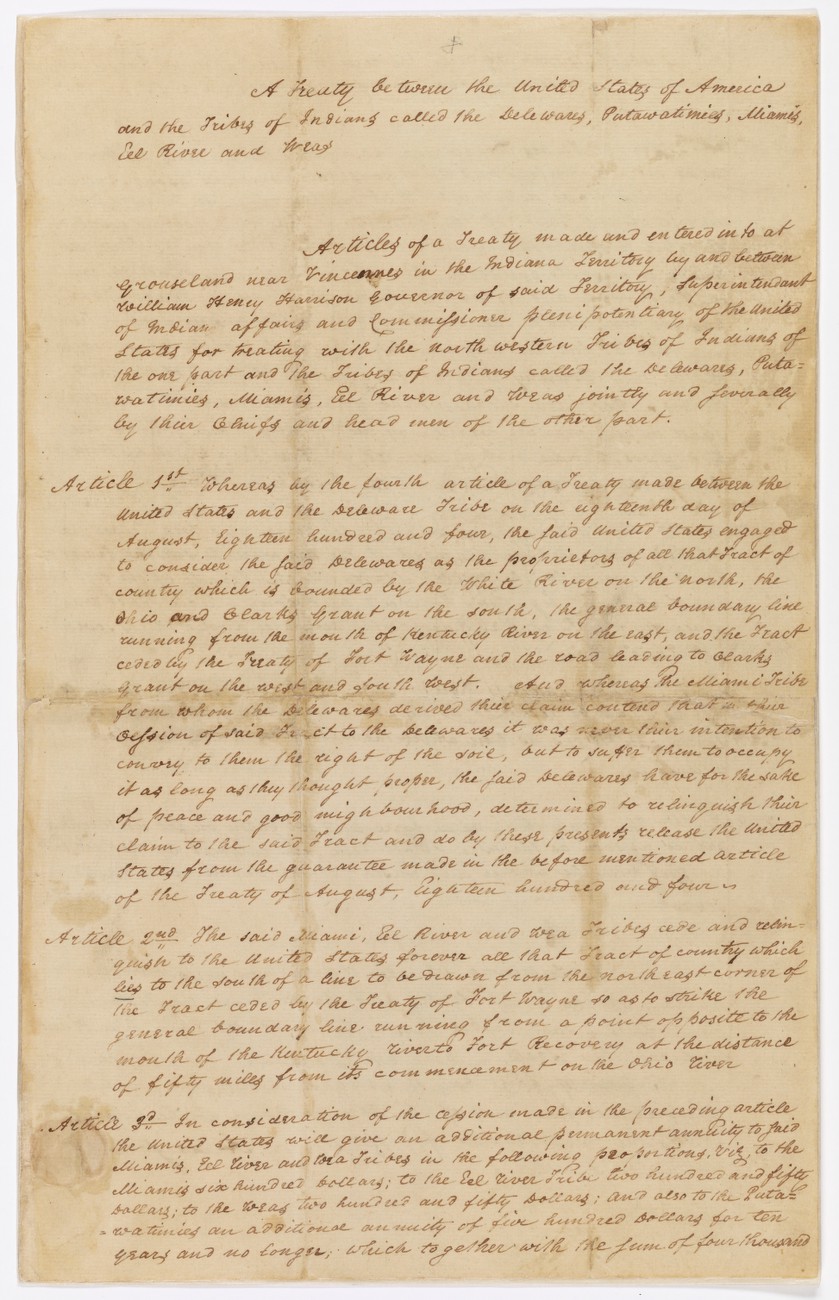 A Treaty between the United States of America
and the Tribes of Indians called the Delewares, Putawatimies, Miamis,
Eel River and Weas
Articles of a Treaty made and entered into at
Grouseland near Vincennes in the Indiana Territory by and between
William Henry Harrison Governor of said Territory, Superintendant
of Indian affairs and Commissioner plenipotentiary of the United
States for treating with the north western Tribes of Indians of
the one part and the Tribes of Indians called the Delewares, Puta=
watimies, Miamis, Eel River and Weas jointly and severally
by their Chiefs and head men of the other part.
Article 1st Whereas by the fourth article of a Treaty made between the
United States and the Deleware Tribe on the eighteenth day of
August, Eighteen hundred and four, the said United States engaged
to consider the said Delewares as the proprietors of all that Tract of
country which is bounded by the White River on the north, the
Ohio and Clarks Grant on the south, the general boundary line
running from the mouth of Kentucky River on the east, and the Tract
ceded by the Treaty of Fort Wayne and the road leading to Clarks
Grant on the west and south west. And whereas the Miami Tribe
from whom the Delewares derived their claim contend that in their
Cession of said Tract to the Delewares it was never their intention to
convey to them the right of the soil, but to suffer them to occupy
it as long as they thought proper, the said Delewares have for the sake
of peace and good nighbourhood, determined to relinquish their
claim to the said Tract and do by these presents release the United
States from the guarantee made in the before mentioned article
of the Treaty of August, Eighteen hundred and four
Article 2nd The said Miami, Eel River and Wea Tribes cede and relin-
quish to the United States forever all that Tract of country which
lies to the south of a line to be drawn from the north east corner of
the Tract ceded by the Treaty of Fort Wayne so as to strike the
general boundary line running from a point opposite to the
mouth of the Kentucky river to Fort Recovery at the distance
of fifty miles from its commencement on the Ohio river
Article 3d In consideration of the cession made in the preceding article
the United States will give an additional permanent annuity to said
Miamis, Eel River and Wea Tribes in the following proportions, Viz, to the
Miamis six hundred Dollars; to the Eel river Tribe two hundred and fifty
Dollars; to the Weas two hundred and fifty Dollars; and also to the Puta=
=watimies an additional annuity of five hundred Dollars for ten
years and no longer; which together with the sum of four thousand